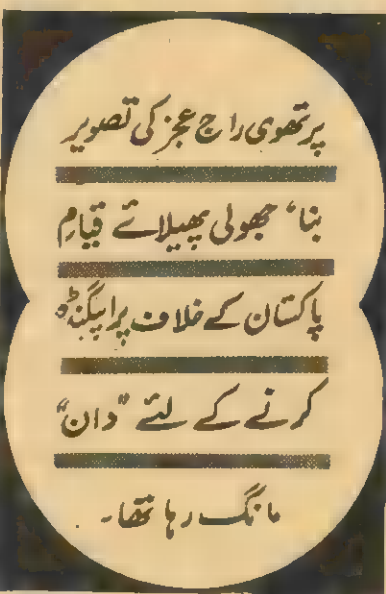 پرتھوی راج عجز کی تصویر
بنا، جھولی پھیلائے قیامِ
پاکستان کے خلاف پراپگنڈہ
کرنے کے لئے "دان"
مانگ رہا تھا۔